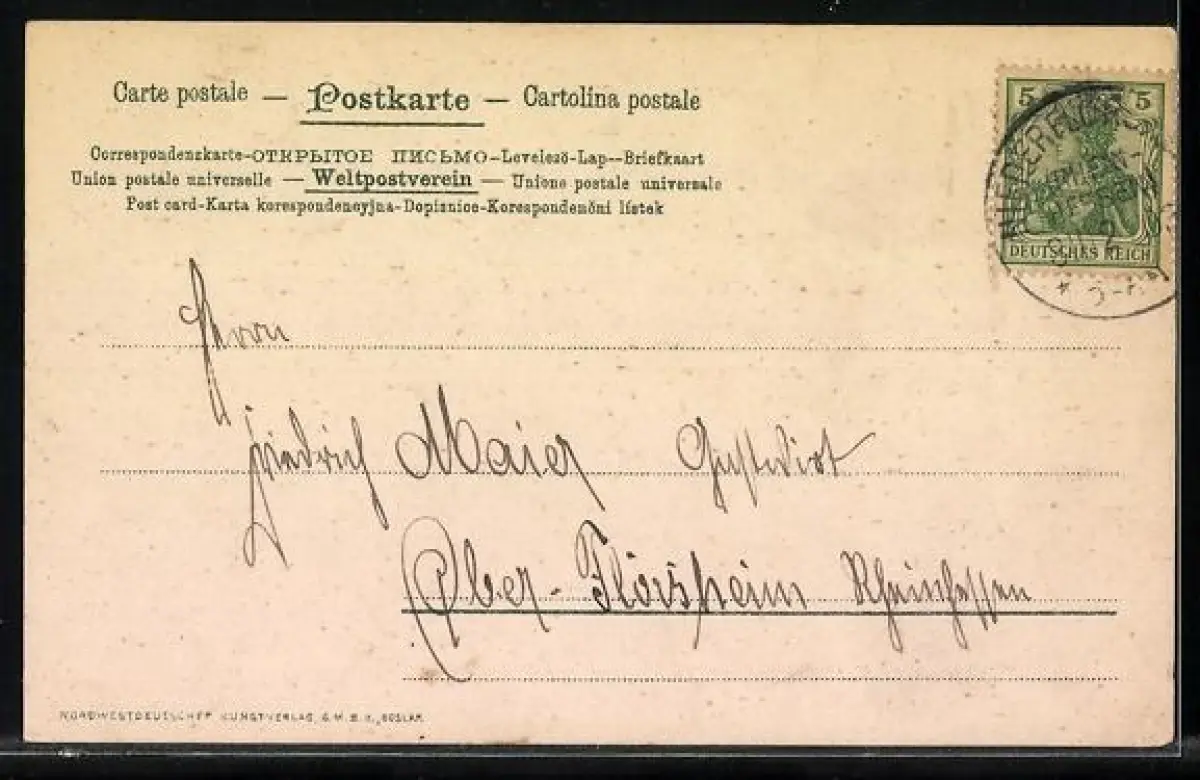 Carte postale — Postkarte — Cartolina postale
Correspondenzkarte-ОТКРЫТОЕ ПИСЬМО-Levelező-Lap--Briefkaart
Union postale universelle — Weltpostverein — Unione postale universale
Post card-Karta korespondencyjna-Dopisnice-Korespondenční lístek
5 5
DEUTSCHES REICH
Herrn
Friedrich Maier Gastwirt
Ober-Flörsheim Rheinhessen
NORDWESTDEUTSCHER KUNSTVERLAG, G.M.B.H., GOSLAR.